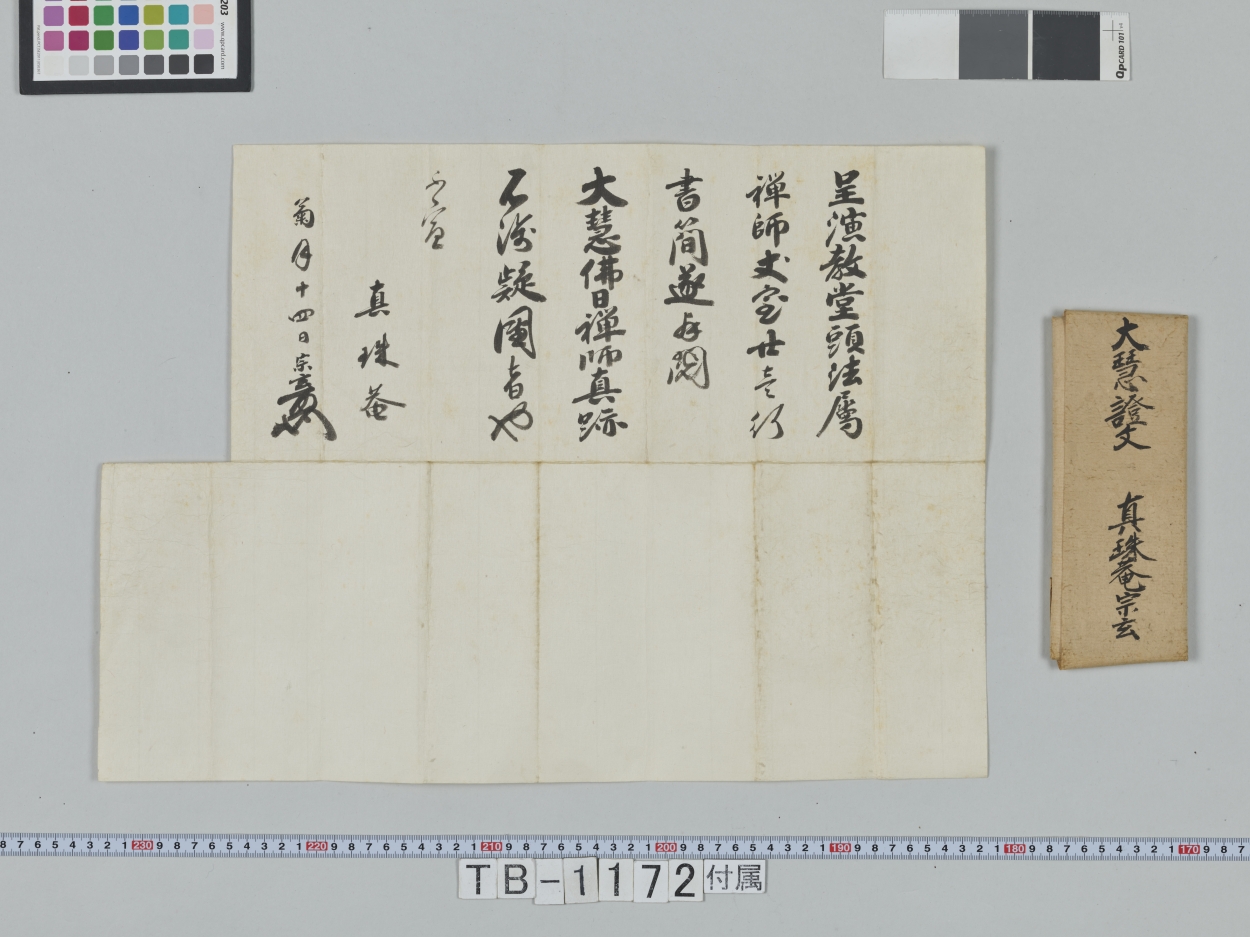 呈演教堂頭法属
禅師丈室廿壱行
書簡遂再閲
大慧佛日禅師真跡
不渉疑團者也
不宣
真珠菴
菊月十四日宗玄
大慧證文 真珠菴宗玄
203 www.qpcard.com
QPCARD 101 v4
8 7 6 5 4 3 2 1 230 9 8 7 6 5 4 3 2 1 220 9 8 7 6 5 4 3 2 1 210 9 8 7 6 5 4 3 2 1 200 9 8 7 6 5 4 3 2 1 190 9 8 7 6 5 4 3 2 1 180 9 8 7 6 5 4 3 2 1 170 9 8 7
TB-1172付属